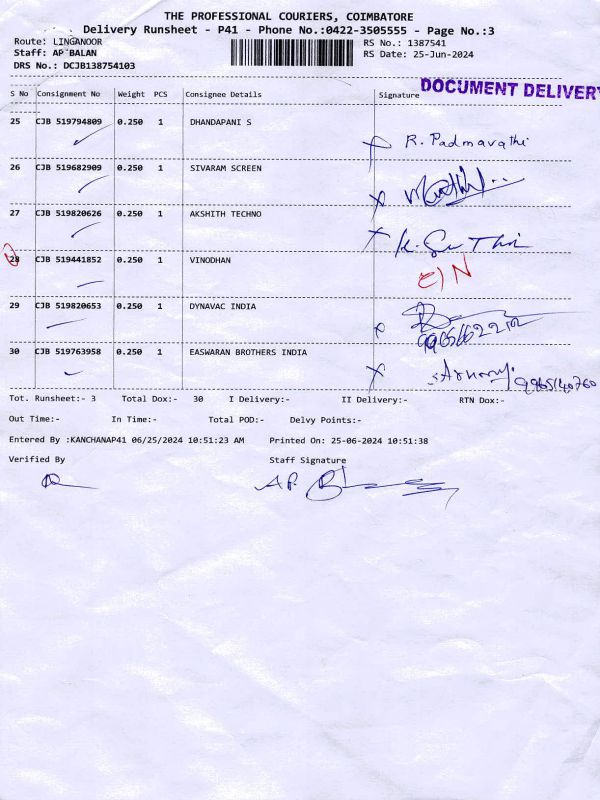 THE PROFESSIONAL COURIERS, COIMBATORE
Delivery Runsheet - P41 - Phone No.:0422-3505555 - Page No.:3
Route: LINGANOOR
RS No.: 1387541
Staff: AP BALAN
RS Date: 25-Jun-2024
DRS No.: DCJB138754103
DOCUMENT DELIVERY
S No Consignment No Weight PCS Consignee Details Signature
25 CJB 519794809 0.250 1 DHANDAPANI S
R. Padmavathi
26 CJB 519682909 0.250 1 SIVARAM SCREEN
27 CJB 519820626 0.250 1 AKSHITH TECHNO
28 CJB 519441852 0.250 1 VINODHAN
C/N
29 CJB 519820653 0.250 1 DYNAVAC INDIA
30 CJB 519763958 0.250 1 EASWARAN BROTHERS INDIA
Tot. Runsheet:- 3 Total Dox:- 30 I Delivery:- II Delivery:- RTN Dox:-
Out Time:- In Time:- Total POD:- Delvy Points:-
Entered By :KANCHANAP41 06/25/2024 10:51:23 AM Printed On: 25-06-2024 10:51:38
Verified By Staff Signature